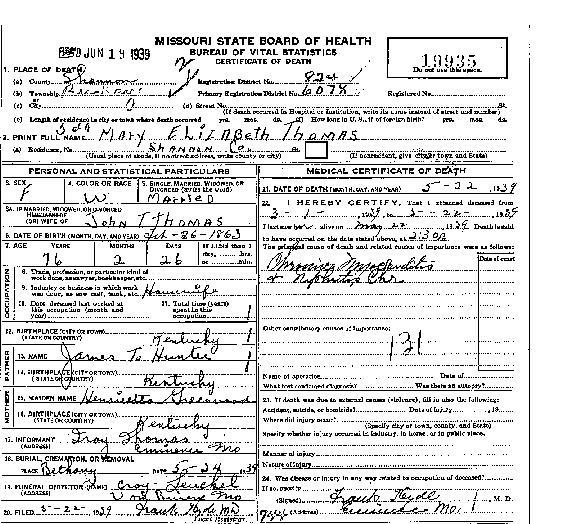 MISSOURI STATE BOARD OF HEALTH
BUREAU OF VITAL STATISTICS
CERTIFICATE OF DEATH
JUN 19 1939
19935
Do not use this space.
1. PLACE OF DEATH
(a) County Shannon
Registration District No. 824
(b) Township
Primary Registration District No. 6078
Registered No.
(c) City
(d) Street No. St.
(If death occurred in Hospital or Institution, write its name instead of street and number)
(e) Length of residence in city or town where death occurred yrs. mos. ds. (f) How long in U. S., if of foreign birth? yrs. mos. ds.
2. PRINT FULL NAME Mary Elizabeth Thomas
(a) Residence, No. Shannon Co. St.
(Usual place of abode, if nonresident, write county or city)
(If nonresident, give city or town and State)
PERSONAL AND STATISTICAL PARTICULARS
3. SEX F
4. COLOR OR RACE W
5. SINGLE, MARRIED, WIDOWED, OR DIVORCED (write the word) Married
5A. IF MARRIED, WIDOWED, OR DIVORCED
HUSBAND OF
(OR) WIFE OF John T Thomas
6. DATE OF BIRTH (MONTH, DAY, AND YEAR) Feb-26-1863
7. AGE YEARS MONTHS DAYS If LESS than 1 day, hrs. or min.
76 2 26
OCCUPATION
8. Trade, profession, or particular kind of work done, sawyer, bookkeeper, etc.
9. Industry or business in which work was done, as saw mill, bank, etc. Housewife
10. Date deceased last worked at this occupation (month and year)
11. Total time (years) spent in this occupation
12. BIRTHPLACE (CITY OR TOWN) (STATE OR COUNTRY) Kentucky
FATHER
13. NAME James T. Hunter
14. BIRTHPLACE (CITY OR TOWN) (STATE OR COUNTRY) Kentucky
MOTHER
15. MAIDEN NAME Henrietta
16. BIRTHPLACE (CITY OR TOWN) (STATE OR COUNTRY) Kentucky
17. INFORMANT Troy Thomas
(ADDRESS) Eminence Mo
18. BURIAL, CREMATION, OR REMOVAL
PLACE Bethany DATE 5-24 1939
19. FUNERAL DIRECTOR (NAME)
(ADDRESS) Mo
20. FILED 5-22-1939 Frank Hyde MD
MEDICAL CERTIFICATE OF DEATH
21. DATE OF DEATH (MONTH, DAY, AND YEAR) 5-22 1939
22. I HEREBY CERTIFY, That I attended deceased from
3-1- 1939, to 5-22- 1939
I last saw h alive on May 22 1939 Death is said
to have occurred on the date stated above, at
The principal cause of death and related causes of importance were as follows:
Date of onset
Chronic Myocarditis
+ Nephritis Chr.
Other contributory causes of importance:
131
Name of operation Date of
What test confirmed diagnosis? Was there an autopsy?
23. If death was due to external causes (violence), fill in also the following:
Accident, suicide, or homicide? Date of injury , 19
Where did injury occur?
(Specify city or town, county, and State)
Specify whether injury occurred in industry, in home, or in public place.
Manner of injury
Nature of injury
24. Was disease or injury in any way related to occupation of deceased?
If so, specify
(Signed) Frank Hyde M. D.
(Address) Eminence Mo.